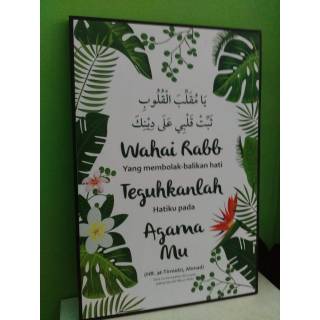 يَا مُقَلِّبَ الْقُلُوبِ
ثَبِّتْ قَلْبِي عَلَى دِينِكَ
Wahai Rabb
Yang membolak-balikan hati
Teguhkanlah
Hatiku pada
Agama
Mu
(HR. at-Tirmidzi, Ahmad)